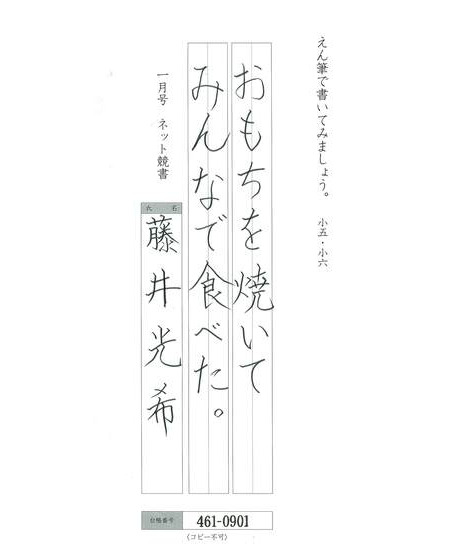 えん筆で書いてみましょう。 小五・小六
おもちを焼いて
みんなで食べた。
一月号 ネット競書
氏名
藤井光希
台帳番号 461-0901
(コピー不可)